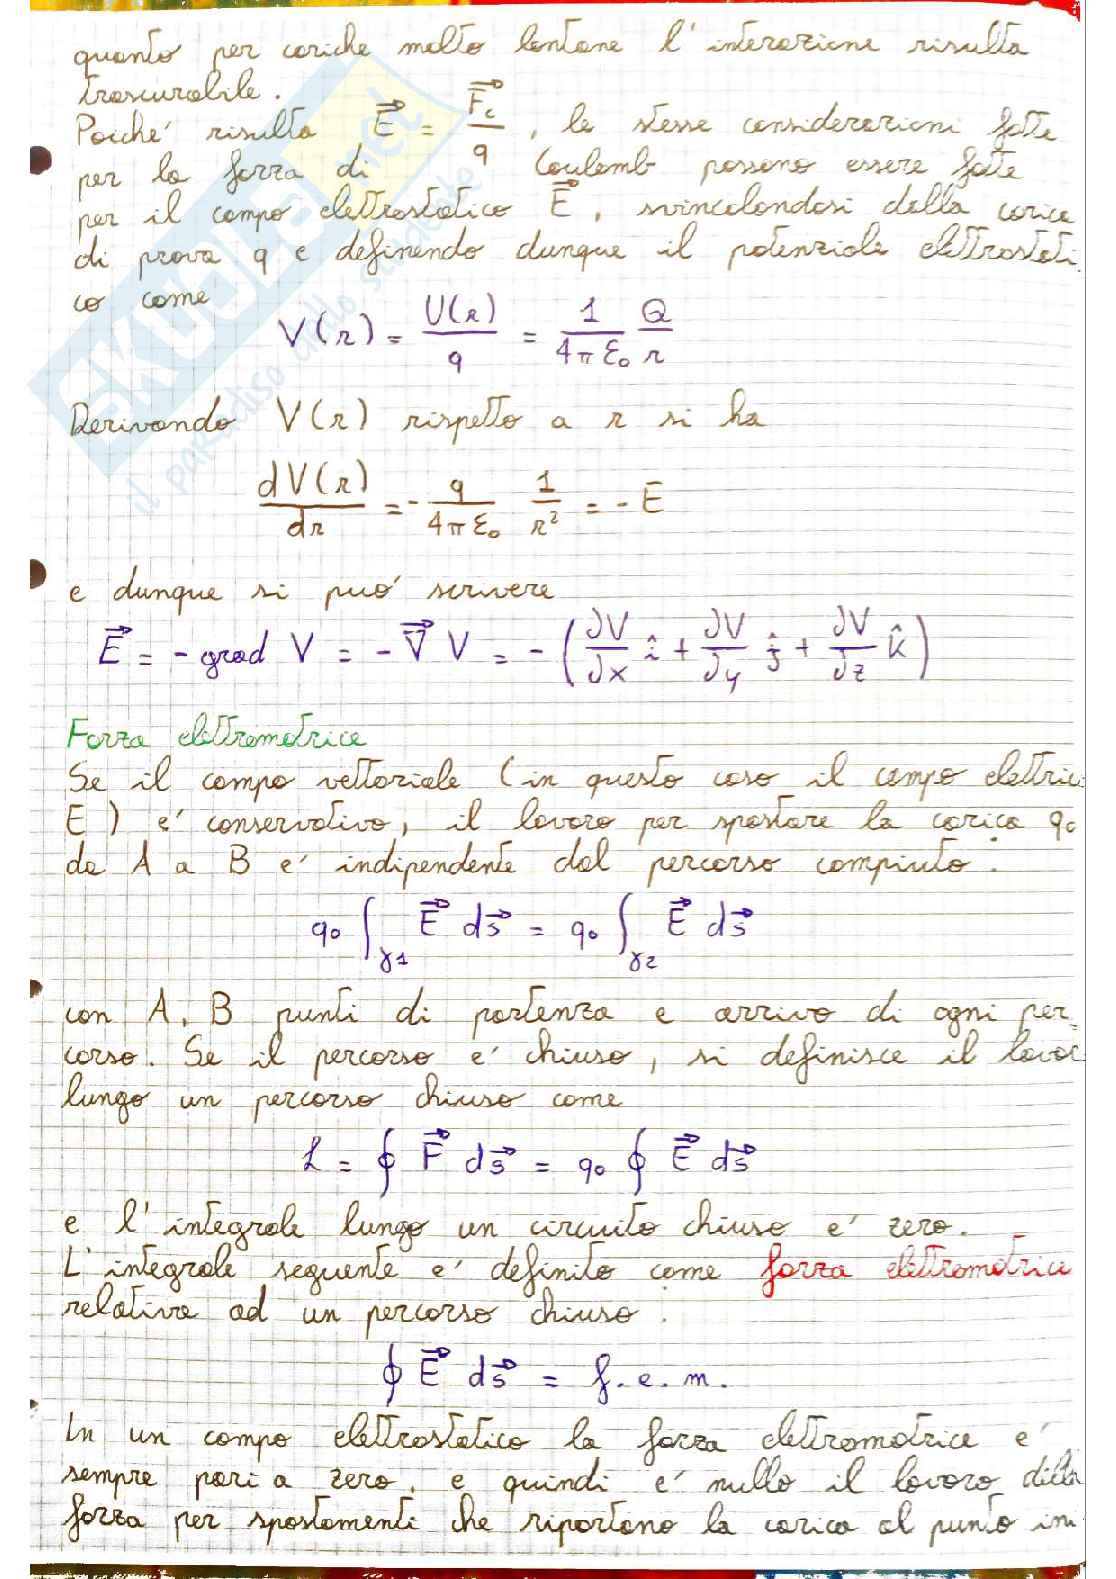 quanto per cariche molto lontane l'interazione risulta
trascurabile.
Poiche' risulta E⃗ = F⃗c/q , le stesse considerazioni fatte
per la forza di Coulomb possono essere fatte
per il campo elettrostatico E⃗, svincolandosi dalla carica
di prova q e definendo dunque il potenziale elettrostati
co come
V(r) = U(r)/q = 1/4πε₀ Q/r
Derivando V(r) rispetto a r si ha
dV(r)/dr = - q/4πε₀ 1/r² = - E
e dunque si puo' scrivere
E⃗ = - grad V = - ∇⃗ V = - (∂V/∂x î + ∂V/∂y ĵ + ∂V/∂z k̂)
Forza elettromotrice
Se il campo vettoriale (in questo caso il campo elettric
E) e' conservativo, il lavoro per spostare la carica q₀
da A a B e' indipendente dal percorso compiuto:
q₀ ∫γ1 E⃗ ds⃗ = q₀ ∫γ2 E⃗ ds⃗
con A, B punti di partenza e arrivo di ogni per-
corso. Se il percorso e' chiuso, si definisce il lavor
lungo un percorso chiuso come
L = ∮ F⃗ ds⃗ = q₀ ∮ E⃗ ds⃗
e l'integrale lungo un circuito chiuso e' zero.
L'integrale seguente e' definito come forza elettromotrice
relativa ad un percorso chiuso.
∮ E⃗ ds⃗ = f.e.m.
In un campo elettrostatico la forza elettromotrice e'
sempre pari a zero, e quindi e' nullo il lavoro della
forza per spostamenti che riportano la carica al punto ini
SKUOLA.net
il paradiso dello studente